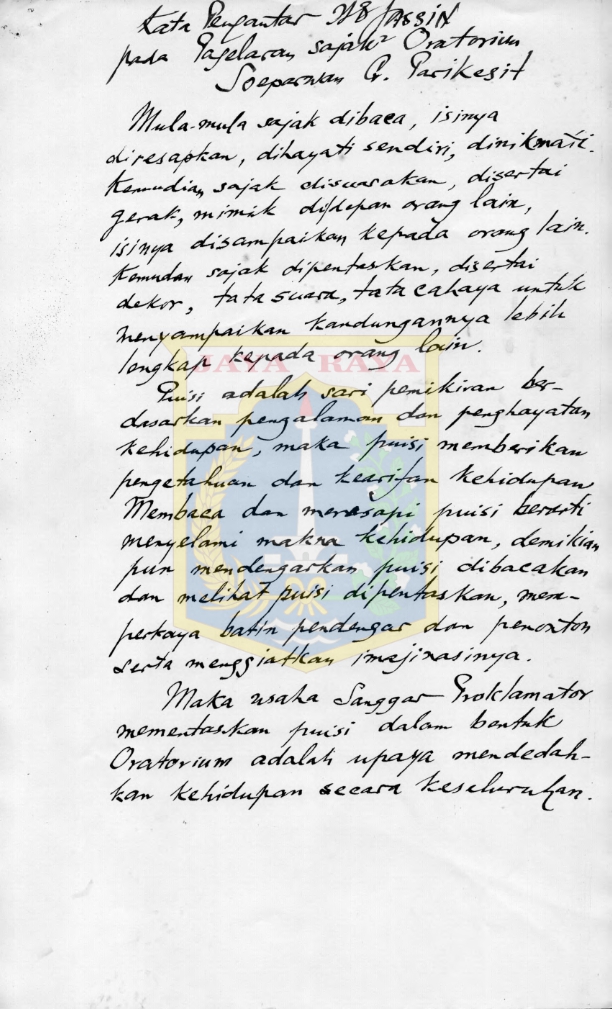 Kata Pengantar HB JASSIN
pada Pagelaran sajak² Oratorium
Soeparwan G. Parikesit
Mula-mula sajak dibaca, isinya
diresapkan, dihayati sendiri, dinikmati.
Kemudian sajak disuarakan, disertai
gerak, mimik didepan orang lain,
isinya disampaikan kepada orang lain.
Kemudan sajak dipentaskan, disertai
dekor, tata suara, tata cahaya untuk
menyampaikan kandungannya lebih
lengkap kepada orang lain.
JAYA RAYA
Puisi adalah sari pemikiran ber-
dasarkan pengalaman dan penghayatan
kehidupan, maka puisi memberikan
pengetahuan dan kearifan kehidupan
Membaca dan meresapi puisi berarti
menyelami makna kehidupan, demikian
pun mendengarkan puisi dibacakan
dan melihat puisi dipentaskan, mem-
perkaya batin pendengar dan penonton
serta menggiatkan imajinasinya.
Maka usaha Sanggar Proklamator
mementaskan puisi dalam bentuk
Oratorium adalah upaya mendedah-
kan kehidupan secara keseluruhan.